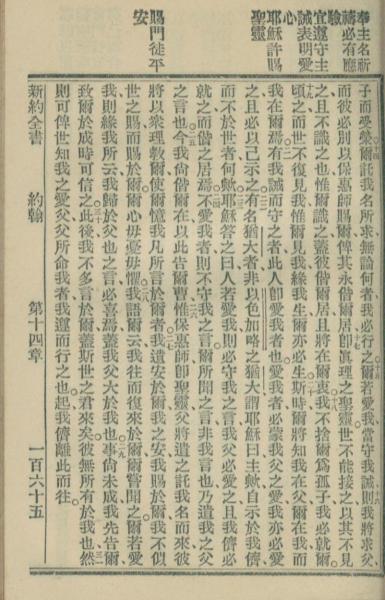 奉主名祈
禱必有應
驗
宜遵守主
誡表明愛
心
耶穌許賜
聖靈
賜門徒平
安
子而受榮爾託我名所求無論何者我必行之爾若愛我當守我誡則我將求父
而彼必別以保惠師賜爾俾其永偕爾居卽眞理之聖靈世不能接之以其不見
之且不識之也惟爾識之蓋彼偕爾居且將在爾衷我不捨爾爲孤子我必就爾
頃之而世不復見我惟爾見我緣我生爾亦必生斯時爾將知我在父爾在我而
我在爾焉有我誡而守之者此人卽愛我者也愛我者必蒙我父之愛我亦必愛
之且必以己示之有名猶大者非以色加略之猶大謂耶穌曰主歟自示於我儕
而不於世者何歟耶穌答之曰人若愛我則必守我之言我父必愛之且我儕必
就之而偕之居焉不愛我者則不守我之言爾所聞之言非我言也乃遣我之父
之言也今我尙偕爾在以此告爾曹惟保惠師卽聖靈父將遣之託我名而來彼
將以衆理敎爾使爾憶我凡所言於爾者我遺安於爾我之安我賜於爾我不似
世之賜而賜於爾爾心毋憂毋懼我語爾云我往而復來於爾爾嘗聞之爾若愛
我則緣我所云我歸於父也之言必喜焉蓋我父大於我也事尙未成我先告爾
致爾於成時可信之此後我不多言於爾蓋斯世之君來矣彼無所有於我也然
則可俾世知我之愛父父所命我者我遵而行之也起我儕離此而往
新約全書 約翰 第十四章 一百六十五